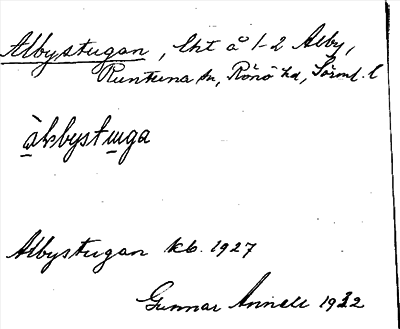 Albystugan, lht å 1-2 Alby,
Runtuna sn, Rönö hd, Sörml. l
àlbystuga
Albystugan kb. 1927
Gunnar Annell 1932